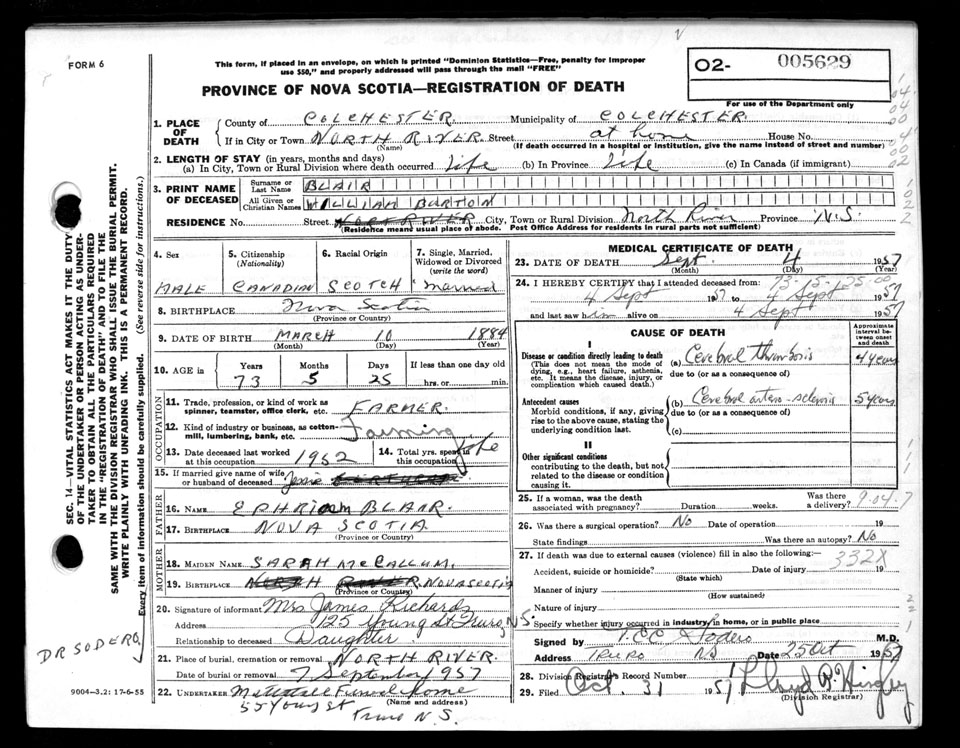 FORM 6
This form, if placed in an envelope, on which is printed "Dominion Statistics—Free, penalty for improper
use $50," and properly addressed will pass through the mail "FREE"
O2- 005629
For use of the Department only
PROVINCE OF NOVA SCOTIA—REGISTRATION OF DEATH
1. PLACE OF DEATH
County of COLCHESTER. Municipality of COLCHESTER.
If in City or Town NORTH RIVER. Street at home House No.
(Name) (If death occurred in a hospital or institution, give the name instead of street and number)
2. LENGTH OF STAY (in years, months and days)
(a) In City, Town or Rural Division where death occurred life (b) In Province life (c) In Canada (if immigrant)
3. PRINT NAME OF DECEASED
Surname or Last Name BLAIR
All Given or Christian Names WILLIAM BURTON
RESIDENCE No. Street NORTH RIVER City, Town or Rural Division North River Province N.S.
(Residence means usual place of abode. Post Office Address for residents in rural parts not sufficient)
4. Sex MALE
5. Citizenship (Nationality) CANADIAN
6. Racial Origin SCOTCH
7. Single, Married, Widowed or Divorced (write the word) married
8. BIRTHPLACE Nova Scotia
(Province or Country)
9. DATE OF BIRTH MARCH 10 1884
(Month) (Day) (Year)
10. AGE in Years 73 Months 5 Days 25 If less than one day hrs. or min.
OCCUPATION
11. Trade, profession, or kind of work as spinner, teamster, office clerk, etc. FARMER.
12. Kind of industry or business, as cotton-mill, lumbering, bank, etc. Farming
13. Date deceased last worked at this occupation 1952
14. Total yrs. spent in this occupation life
15. If married give name of wife or husband of deceased Jessie
FATHER
16. NAME EPHRIAM BLAIR.
17. BIRTHPLACE NOVA SCOTIA
(Province or Country)
MOTHER
18. MAIDEN NAME SARAH McCALLUM.
19. BIRTHPLACE NORTH RIVER NOVA SCOTIA
(Province or Country)
20. Signature of informant Mrs James Richards
Address 125 Young St Truro, N.S.
Relationship to deceased Daughter
21. Place of burial, cremation or removal NORTH RIVER.
Date of burial or removal 7 September 957
22. UNDERTAKER Funeral Home
(Name and address)
55 Young St
Truro N.S.
9004-3.2: 17-6-55
DR SODERO
SEC. 14—VITAL STATISTICS ACT MAKES IT THE DUTY
OF THE UNDERTAKER OR PERSON ACTING AS UNDER-
TAKER TO OBTAIN ALL THE PARTICULARS REQUIRED
IN THE "REGISTRATION OF DEATH" AND TO FILE THE
SAME WITH THE DIVISION REGISTRAR WHO SHALL ISSUE THE BURIAL PERMIT.
WRITE PLAINLY WITH UNFADING INK. THIS IS A PERMANENT RECORD.
Every item of information should be carefully supplied. (See reverse side for instructions.)
MEDICAL CERTIFICATE OF DEATH
23. DATE OF DEATH Sept. 4 1957
(Month) (Day) (Year)
73-5-25-00
24. I HEREBY CERTIFY that I attended deceased from:
4 Sept 1957 to 4 Sept 1957
and last saw him alive on 4 Sept 1957
CAUSE OF DEATH
Approximate interval between onset and death
I
Disease or condition directly leading to death
(This does not mean the mode of dying, e.g., heart failure, asthenia, etc. It means the disease, injury, or complication which caused death.)
(a) Cerebral thrombosis 4 years
due to (or as a consequence of)
Antecedent causes
Morbid conditions, if any, giving rise to the above cause, stating the underlying condition last.
(b) Cerebral arterio-sclerosis 5 years
due to (or as a consequence of)
(c)
II
Other significant conditions
contributing to the death, but not related to the disease or condition causing it.
25. If a woman, was the death associated with pregnancy? Duration weeks. Was there a delivery? 9.04.7
26. Was there a surgical operation? No Date of operation 19
State findings Was there an autopsy? No
27. If death was due to external causes (violence) fill in also the following:—
332X
Accident, suicide or homicide? Date of injury 19
(State which)
Manner of injury
(How sustained)
Nature of injury
Specify whether injury occurred in industry, in home, or in public place
Signed by Sodero M.D.
Address TRURO NS Date 25 Oct 1957
28. Division Registrar's Record Number
29. Filed Oct. 31 1957
(Division Registrar)